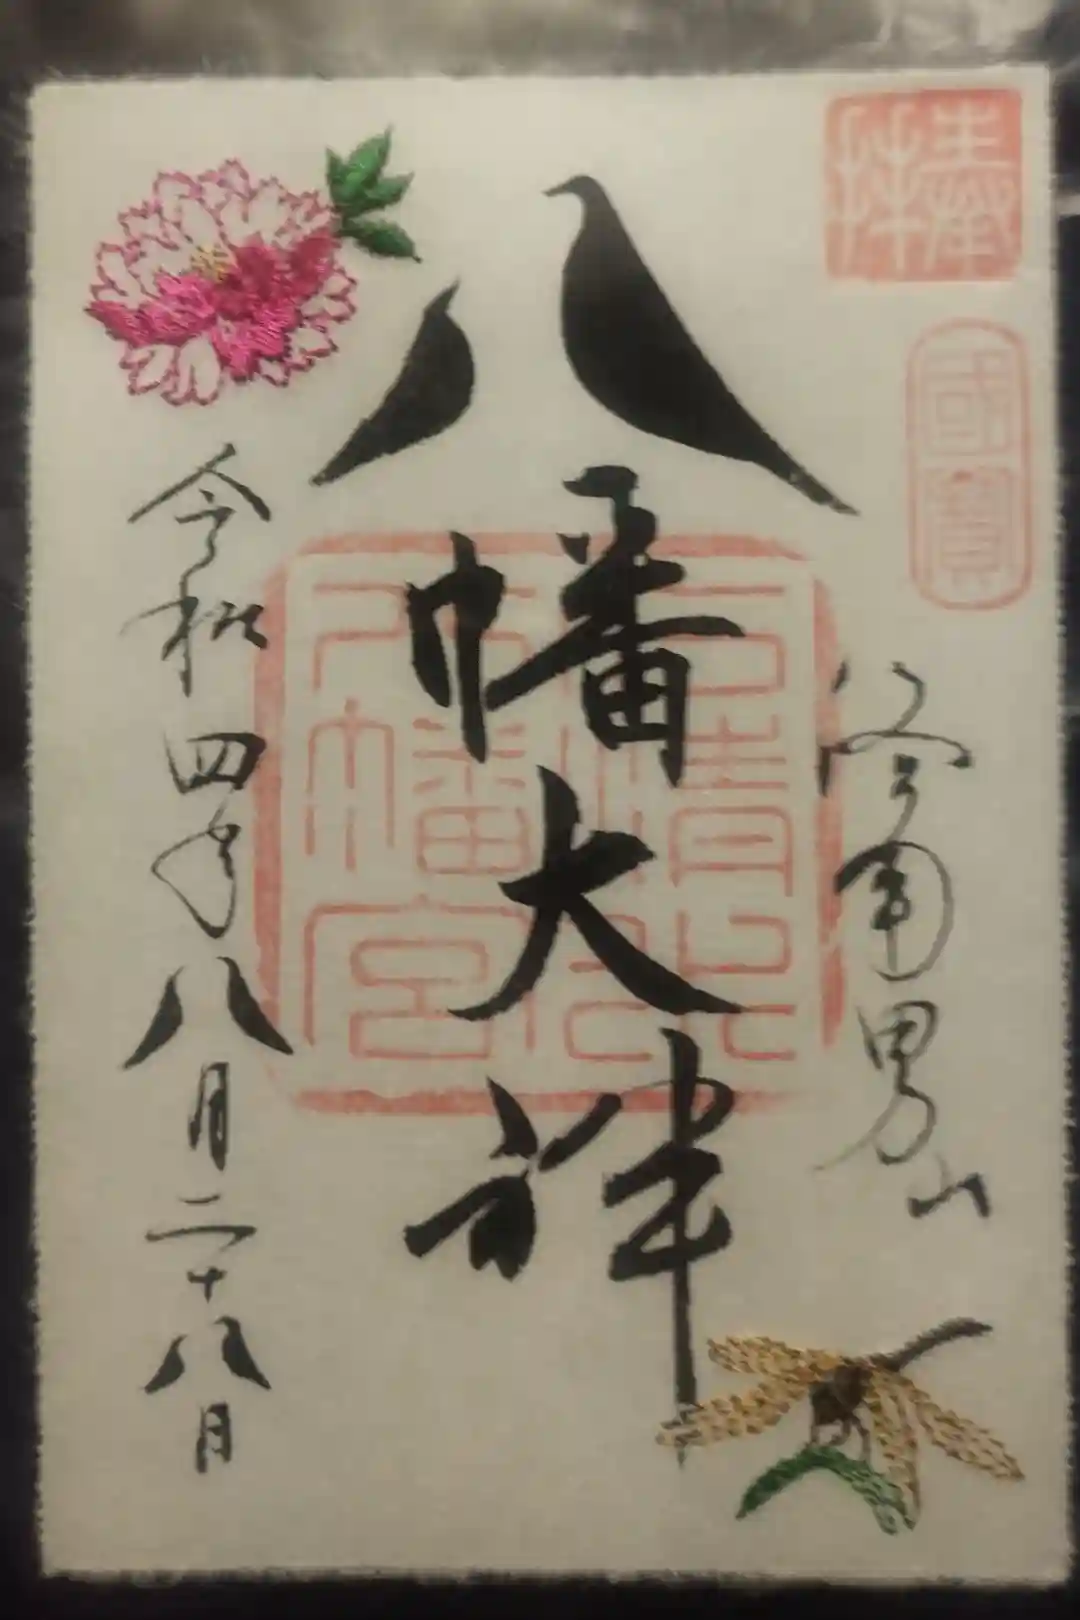 奉拝
國寶
公宮南男山
八幡大神
石清水八幡宮
令和四年八月二十八日